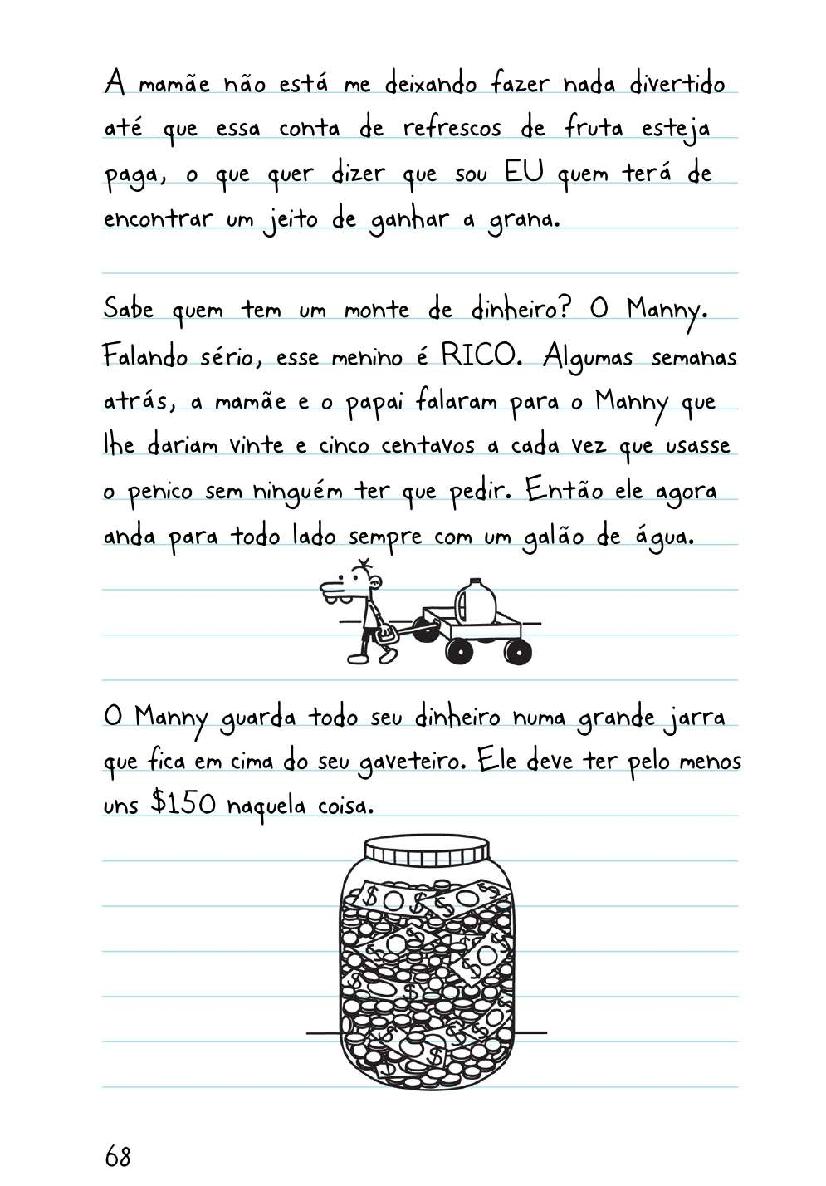 A mamãe não está me deixando fazer nada divertido
até que essa conta de refrescos de fruta esteja
paga, o que quer dizer que sou EU quem terá de
encontrar um jeito de ganhar a grana.
Sabe quem tem um monte de dinheiro? O Manny.
Falando sério, esse menino é RICO. Algumas semanas
atrás, a mamãe e o papai falaram para o Manny que
lhe dariam vinte e cinco centavos a cada vez que usasse
o penico sem ninguém ter que pedir. Então ele agora
anda para todo lado sempre com um galão de água.
O Manny guarda todo seu dinheiro numa grande jarra
que fica em cima do seu gaveteiro. Ele deve ter pelo menos
uns $150 naquela coisa.
68